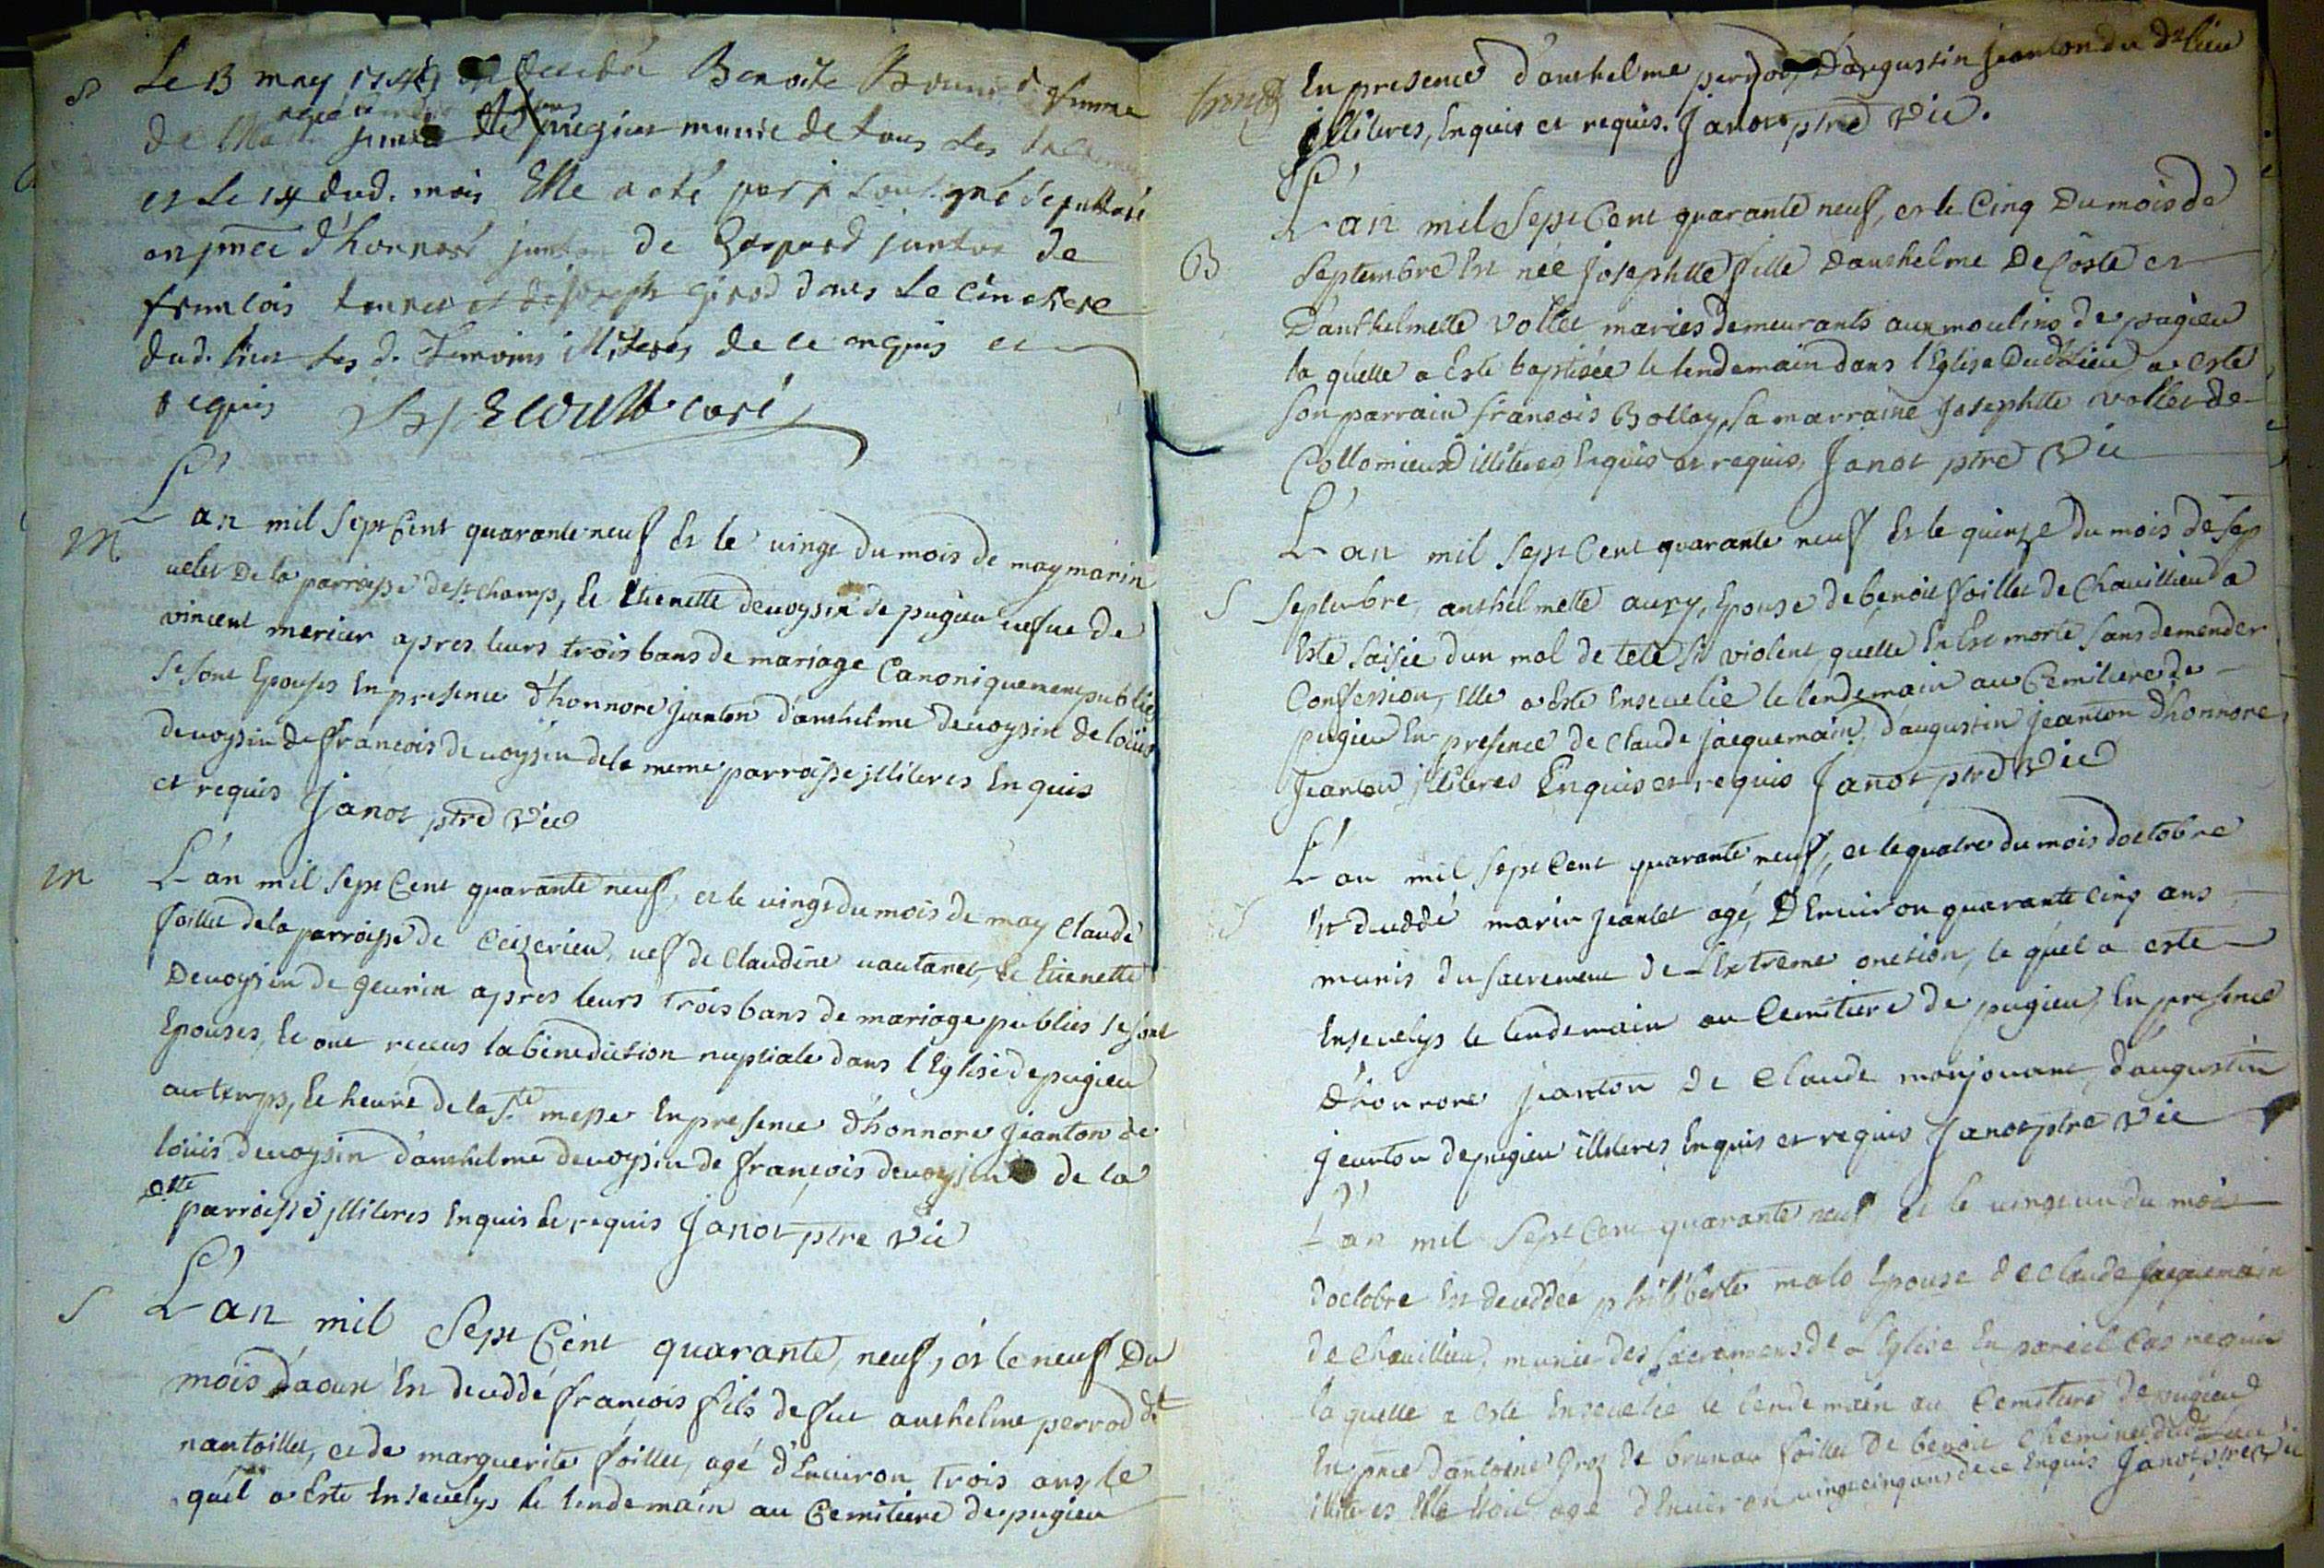 S Le 13 may 1749 est decedée Benoite femme
de de pugieu munie de tous les
et le 14 dud. mois Elle a été par je soussigné sepulturé
en pnce d'honnoré junton de Gaspard junton de
francois et de joseph girod dans Le Cimetiere
dud. lieu les d. Temoins illiteres de ce enquis et
requis curé
M L'an mil sept Cent quarante neuf Et le vingt du mois de may marin
velet De la parroisse de st champ, Et Etienette devoysin de pugieu vefue de
vincent mercier apres leurs trois bans de mariage Canoniquement publies
se sont Epouses En presence d'honnore jeanton d'anthelme devoysin de loüis
devoysin de francois devoysin de la meme parroisse illiteres Enquis
et requis Janot ptre Vic
M L'an mil sept Cent quarante neuf, et le vingt du mois de may Claude
foillet de la parroisse de Ceizerieu, vef de Claudine vautaret, Et Etienette
Devoysin de geurin apres leurs trois bans de mariage publies se sont
Epouses, Et ont receus la benediction nuptiale dans l'Eglise de pugieu
au temps, Et heure de la Ste messe En presence d'honnore jeanton de
loüis devoysin d'anthelme devoysin de françois devoysin de la
dtte parroisse illiteres Enquis Et requis Janot ptre Vic
S L'an mil Sept Cent quarante neuf, et le neuf Du
mois d'aoust Est deceddé francois fils de feu anthelme perrod dt
nantoillet, et de marguerite foillet, agé d'Environ trois ans, le
quel a Esté Ensevelys le lendemain au Cemitiere de pugieu
En presence d'anthelme perrod, D'augustin jeanton du dt lieu
illiteres, Enquis et requis. Janot ptre Vic.
B L'an mil Sept Cent quarante neuf, et le Cinq Du mois de
Septembre Est née Josephtte fille D'anthelme De Coste et
D'anthelmette vollet maries demeurants aux moulins de pugieu
la quelle a Esté baptisée le lendemain dans l'Eglise Dudt Lieu a esté
son parrain françois Bollay, sa marraine Josephtte vollet de
Collomieux illiteres Enquis et requis, Janot ptre Vic
S L'an mil sept Cent quarante neuf Et le quinze du mois de sep
septembre, anthelmette aupy, Epouse de benoit foillet de Chavillieu a
Esté saisie d'un mal de tete si violent quelle En Est morte sans demender
Confession, Elle a Esté Ensevelie le lendemain au Cemitiere de
pugieu En presence de Claude jacquemain, d'augustin jeanton d'honnore
jeanton illiteres Enquis et requis Janot ptre Vic
S L'an mil sept Cent quarante neuf, et le quatre du mois doctobre
Est deceddé marin jeantet agé, D'Environ quarante cinq ans
munis du sacrement de L'Extreme onction, le quel a esté
Ensevelys le lendemain au Cemitiere de pugieu, En presence
d'honnore jeanton de Claude monjouvant, d'augustin
jeanton de pugieu illiteres Enquis et requis Janot ptre Vic
L'an mil Sept Cent quarante neuf et le vingt un du mois
doctobre Est deceddée philiberte malo Epouse de Claude jacquemain
de Chavillieu, munie des sacremens de L'Eglise En pareil Cas requis
la quelle a esté Ensevelie le lendemain au Cemitiere de pugieu
En pnce d'antoine Gros de brunau foillet de benoit dudt lieu
illiteres Elle Etoit agé d'Environ vingt cinq ans de ce Enquis Janot ptre Vic